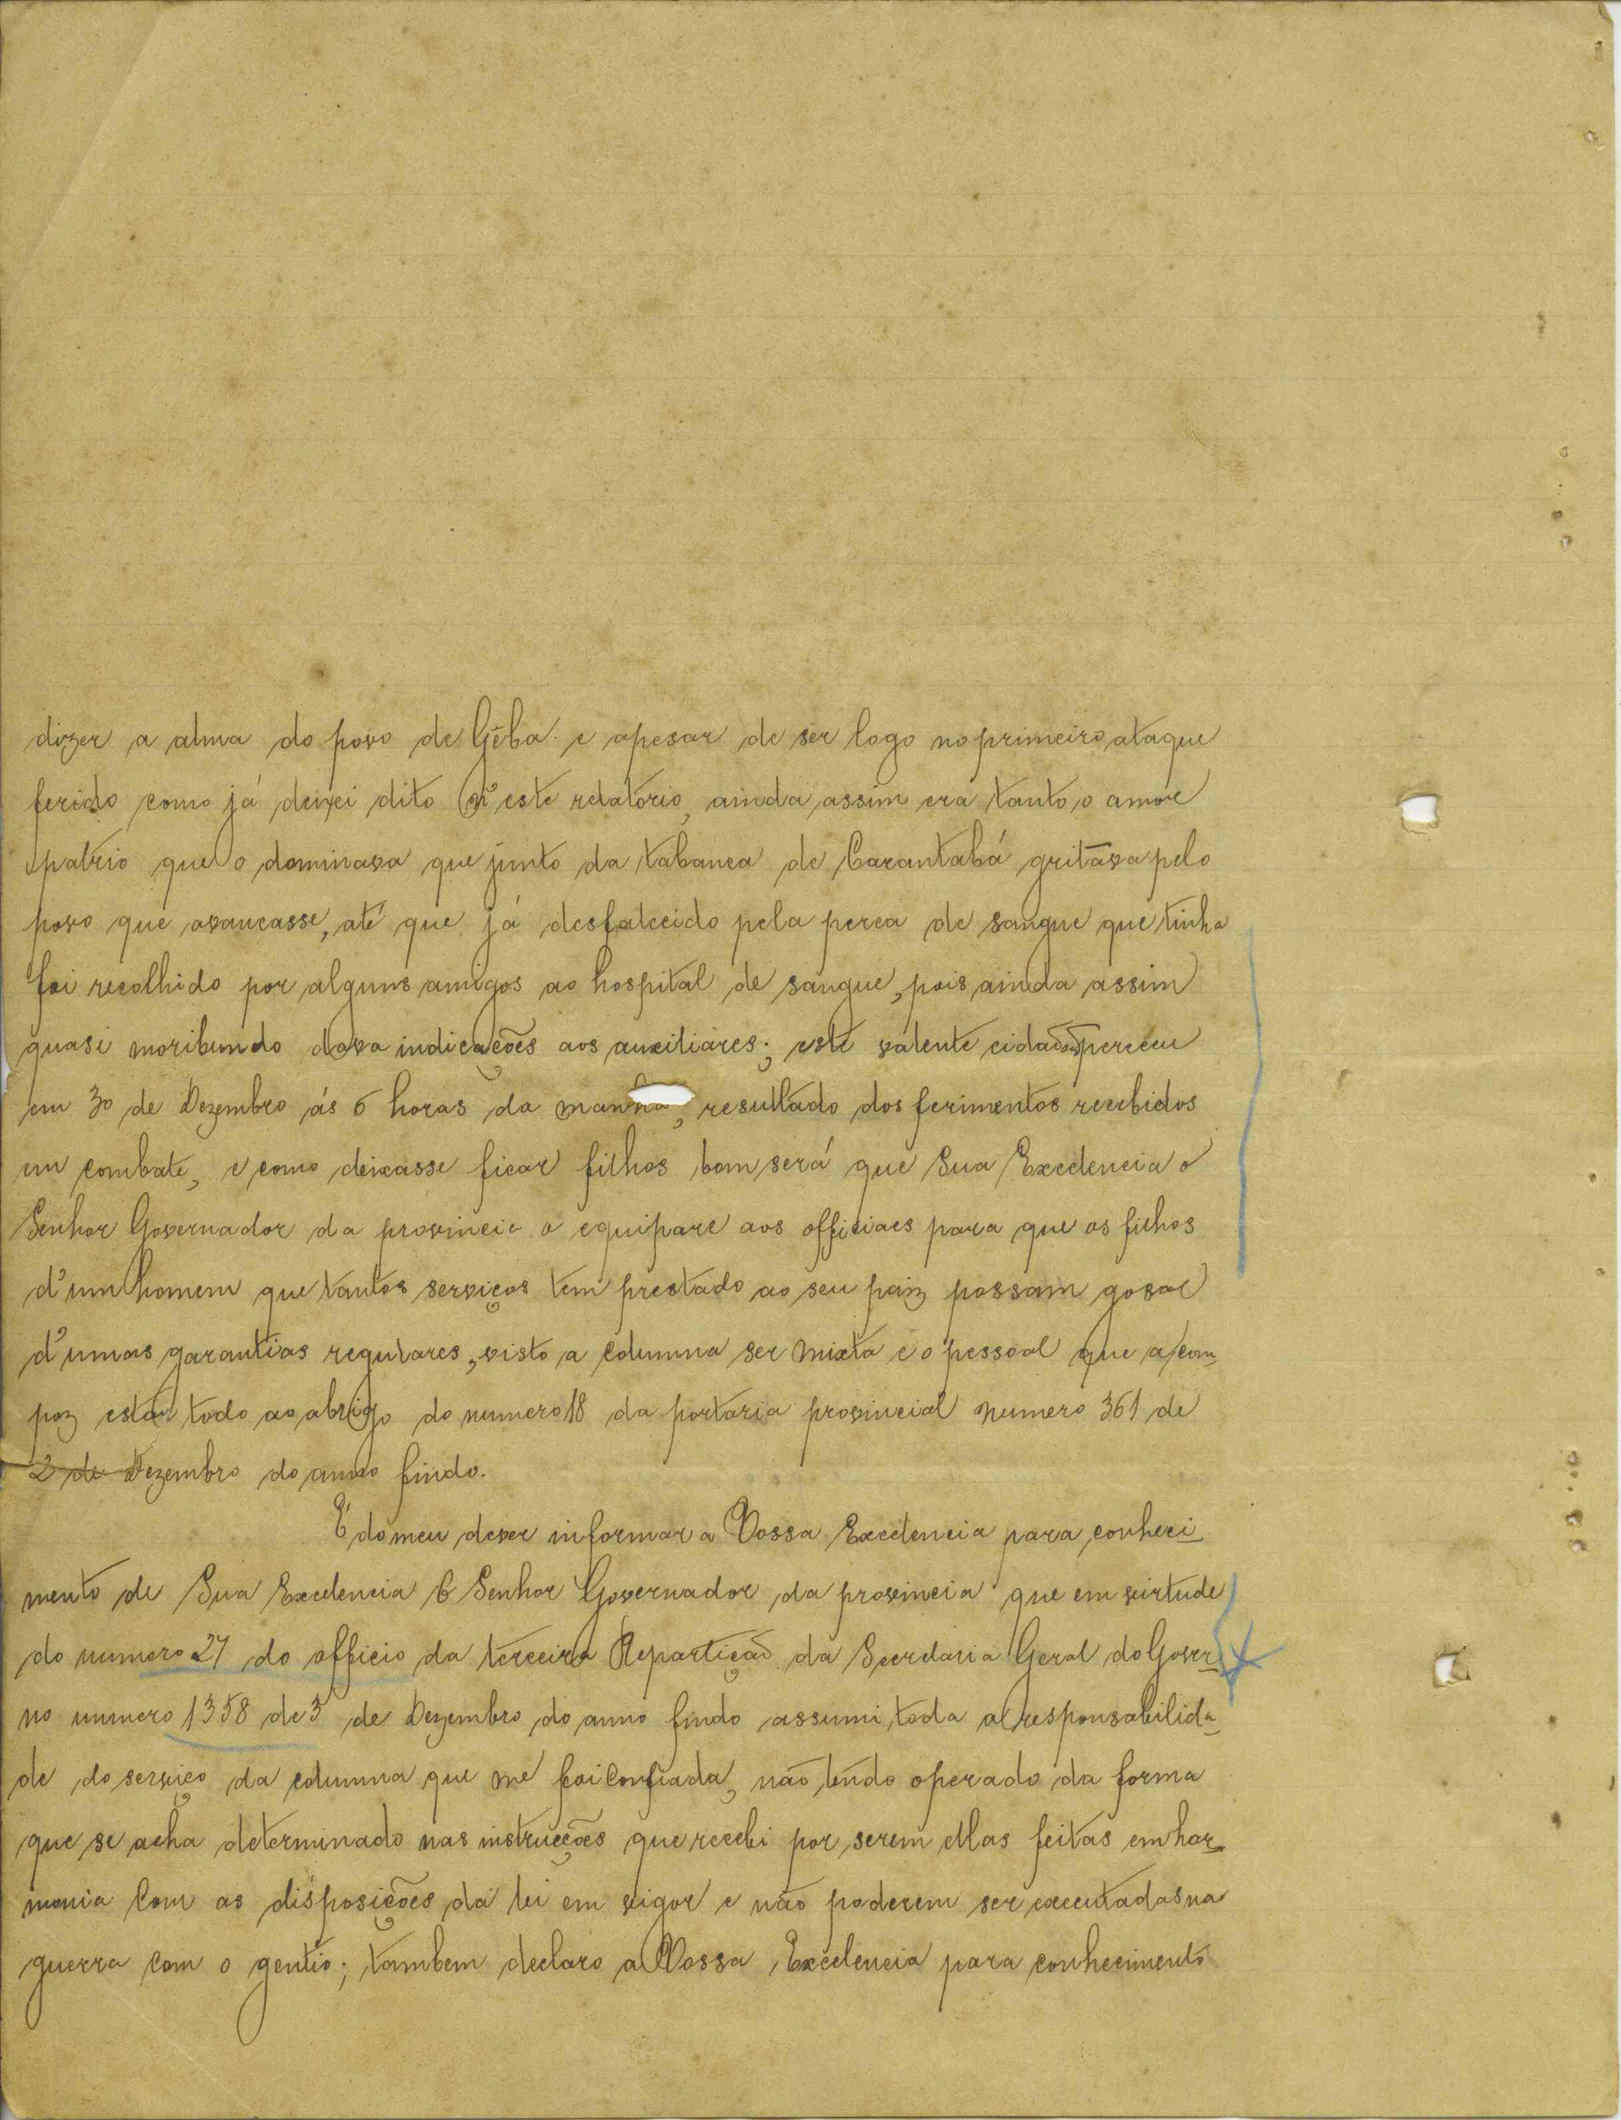 dizer a alma do povo de Gêba e apesar de ser logo no primeiro ataque
ferido como já deixei dito n'este relatorio, ainda assim era tanto o amor
patrio que o dominava que junto da tabanca de Carantabá gritava pelo
povo que avancasse, até que já desfalecido pela perca de sangue que tinha
foi recolhido por alguns amigos ao hospital de sangue, pois ainda assim
quasi moribundo dava indicações aos auxiliares; este valente cidadão pereceu
em 30 de Dezembro ás 6 horas da manhã, resultado dos ferimentos recebidos
em combate, e como deixasse ficar filhos bom será que Sua Excelencia o
Senhor Governador da provincia o equipare aos officiaes para que os filhos
d'um homem que tantos serviços tem prestado ao seu paiz possam gosar
d'umas garantias regulares, visto a columna ser mixta e o pessoal que a com-
poz estar todo ao abrigo do numero 18 da portaria provincial numero 361 de
2 de Dezembro do anno findo.
É do meu dever informar a Vossa Excelencia para conheci-
mento de Sua Excelencia O Senhor Governador da provincia que em virtude
do numero 27 do officio da terceira Repartição da Secretaria Geral do Gover-
no numero 1358 de 3 de Dezembro do anno findo assumi toda a responsabilida-
de do serviço da columna que me foi confiada, não tendo operado da forma
que se acha determinado nas instrucções que recebi por serem ellas feitas em har-
monia com as disposições da lei em vigor e não poderem ser executadas na
guerra com o gentio; tambem declaro a Vossa Excelencia para conhecimento